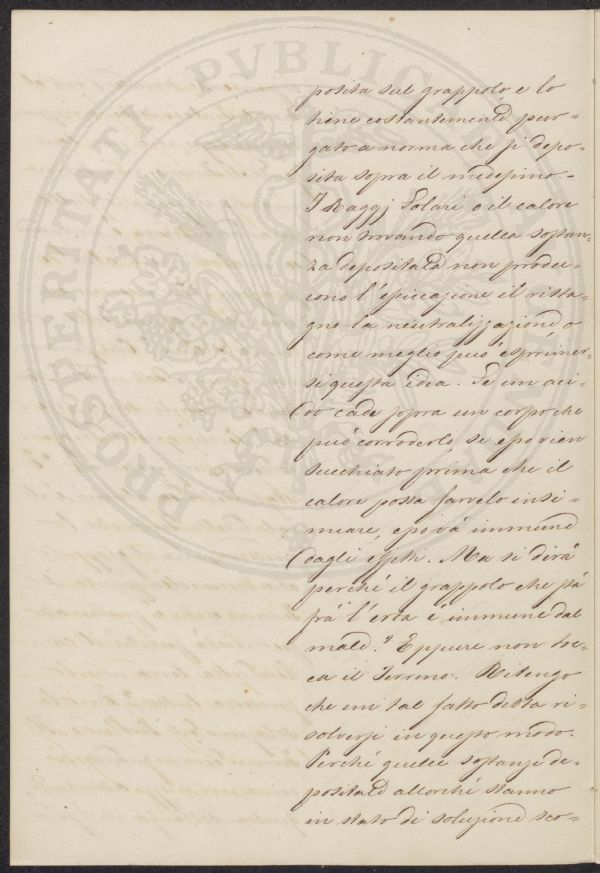 posita sul grappolo e lo
tiene costantemente pur=
gato a norma che si depo=
sita sopra il medesimo.
I Raggj Solari o il calore
non trovando quella sostan=
za depositata non produ=
cono l'essicazione il rista=
gno la neutralizzazione o
come meglio può esprimer=
si questa idea. Se un aci=
do cade sopra un corpo che
può corroderlo, se esso vien
succhiato prima che il
calore possa farvelo insi=
nuare, esso và immune
dagli effetti. Ma si dirà
perché il grappolo che stà
frà l'erba è immune dal
male? Eppure non toc=
ca il Terreno. Ritengo
che un tal fatto debba ri=
solversi in questo modo.
Perché quelle sostanze de=
positate allorché stanno
in stato di soluzione sco=
PROSPERITATI PVBLICAE